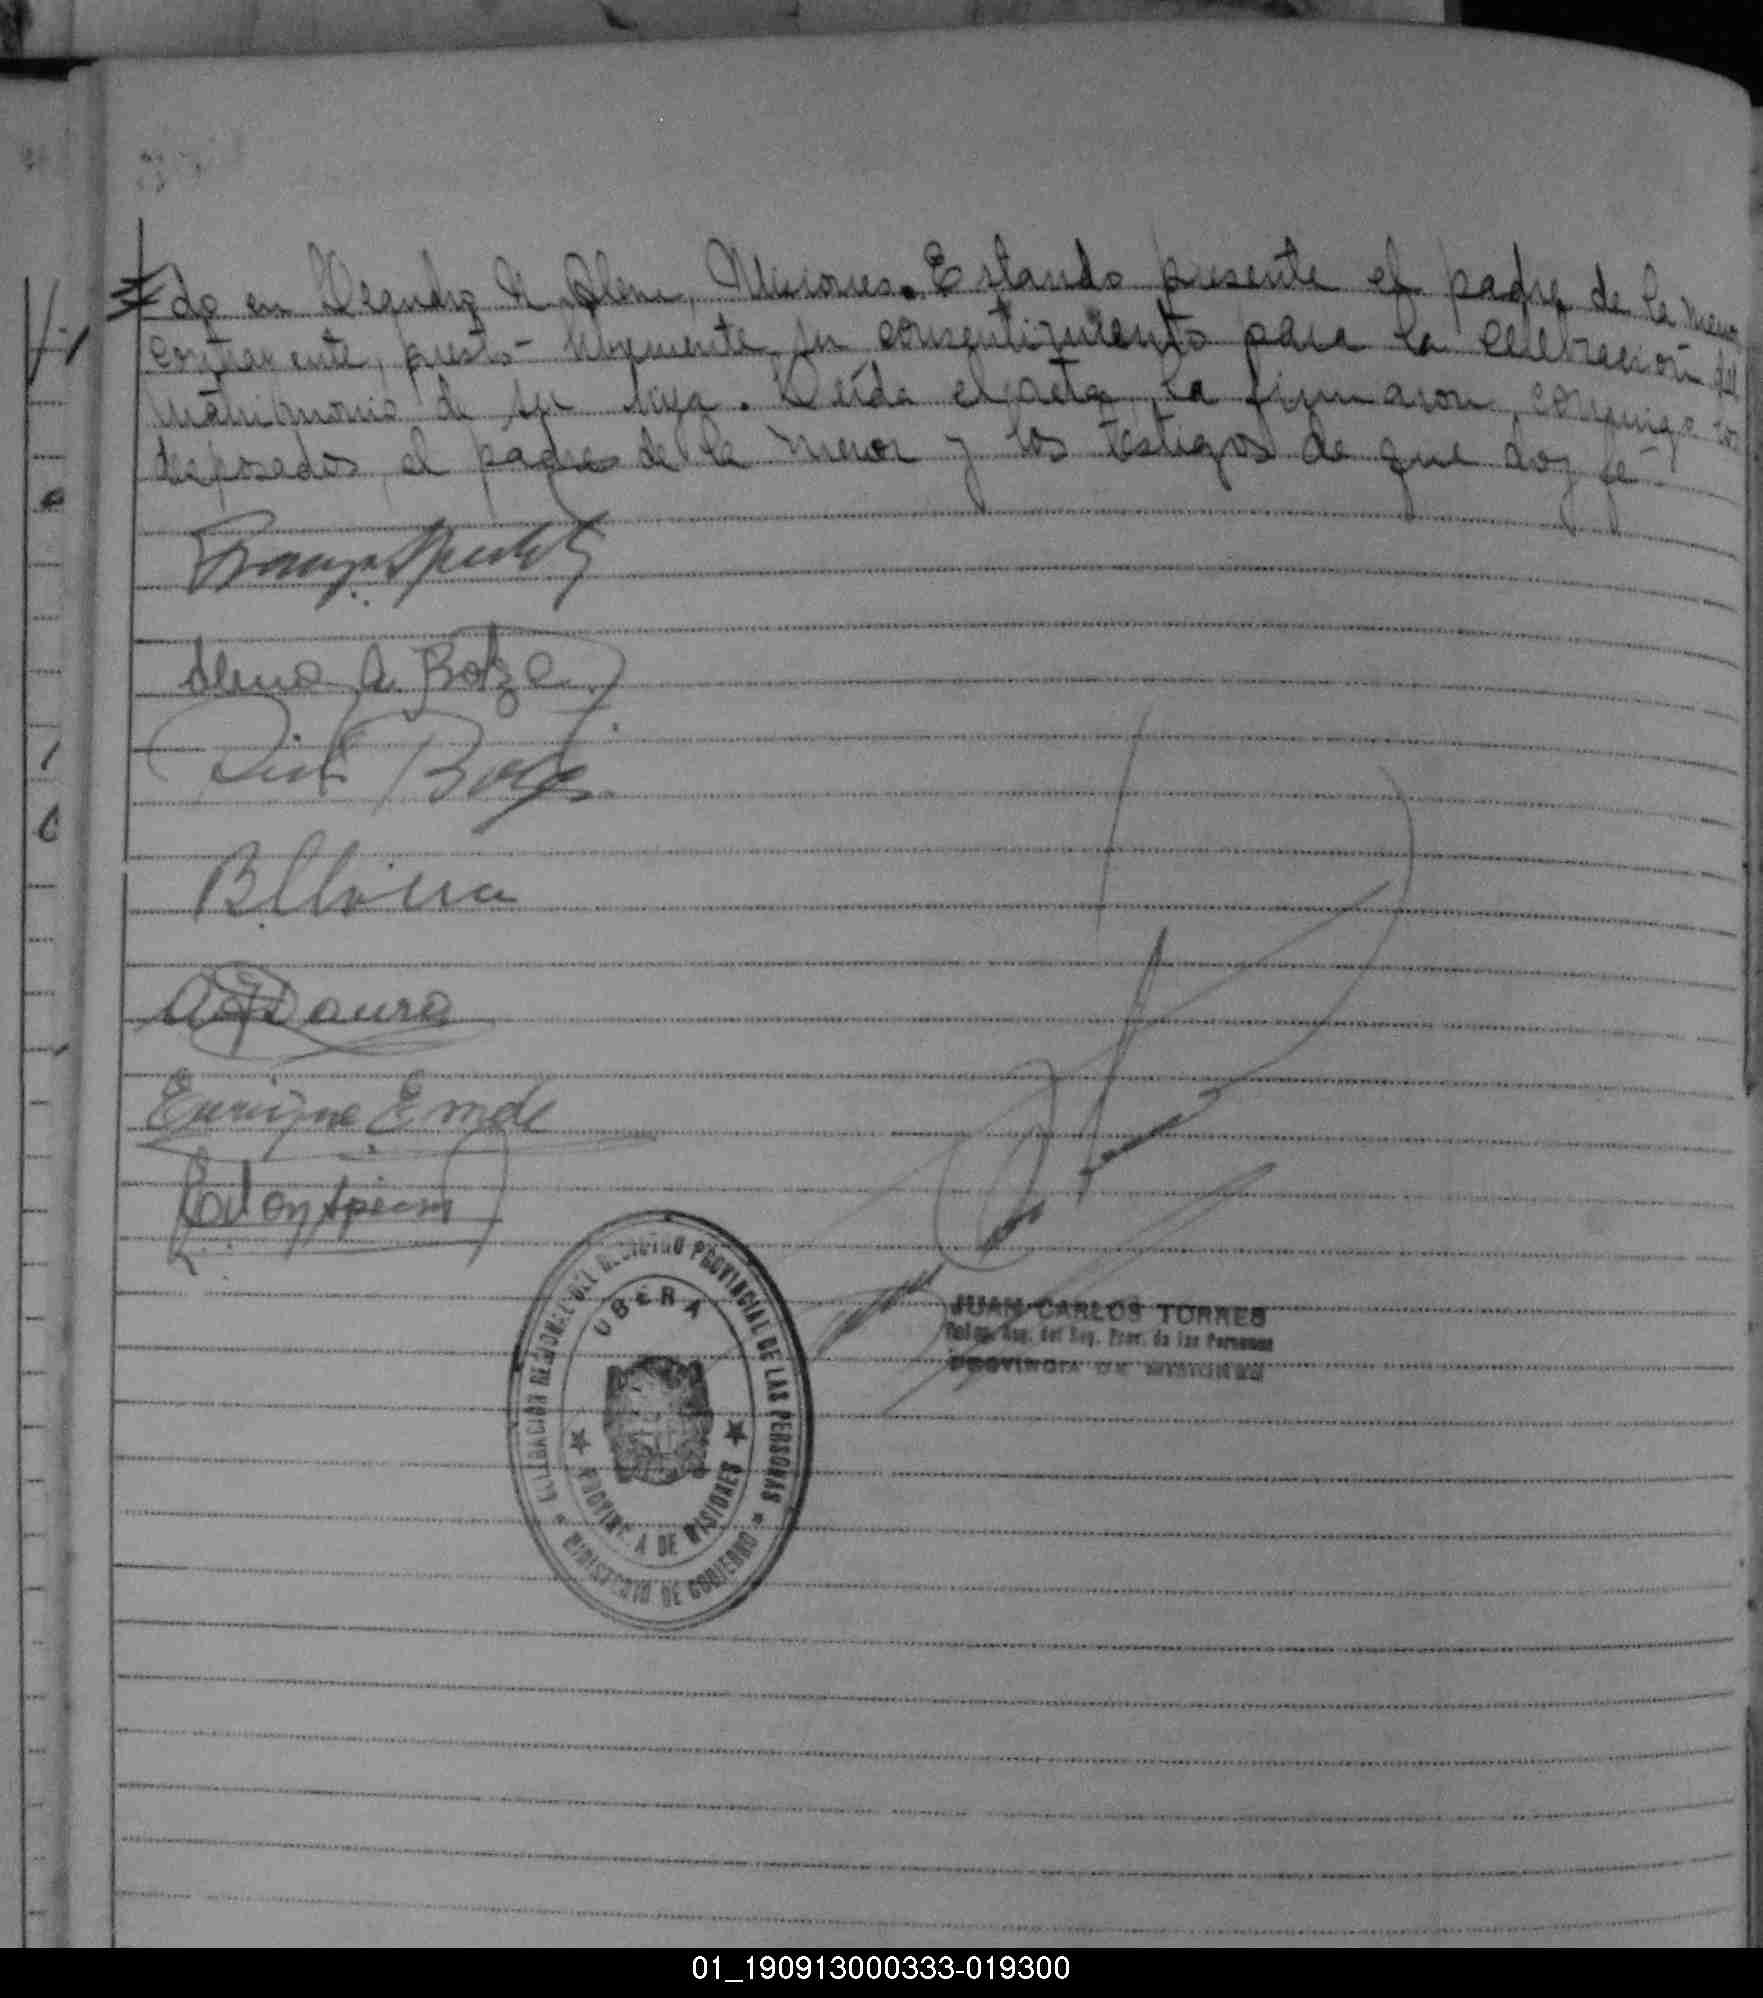 do en Leandro N. Alem, Misiones. Estando presente el padre de la menor
contrayente, prestó libremente su consentimiento para la celebración del
matrimonio de su hija. Leída el acta, la firmaron, conmigo los
desposados, el padre de la menor y los testigos de que doy fé
Enrique Emde
DELEGACION REGIONAL DEL REGISTRO PROVINCIAL DE LAS PERSONAS
OBERA
PROVINCIA DE MISIONES
MINISTERIO DE GOBIERNO
JUAN CARLOS TORRES
Reg. del Reg. Prov. de las Personas
PROVINCIA DE MISIONES
01_190913000333-019300